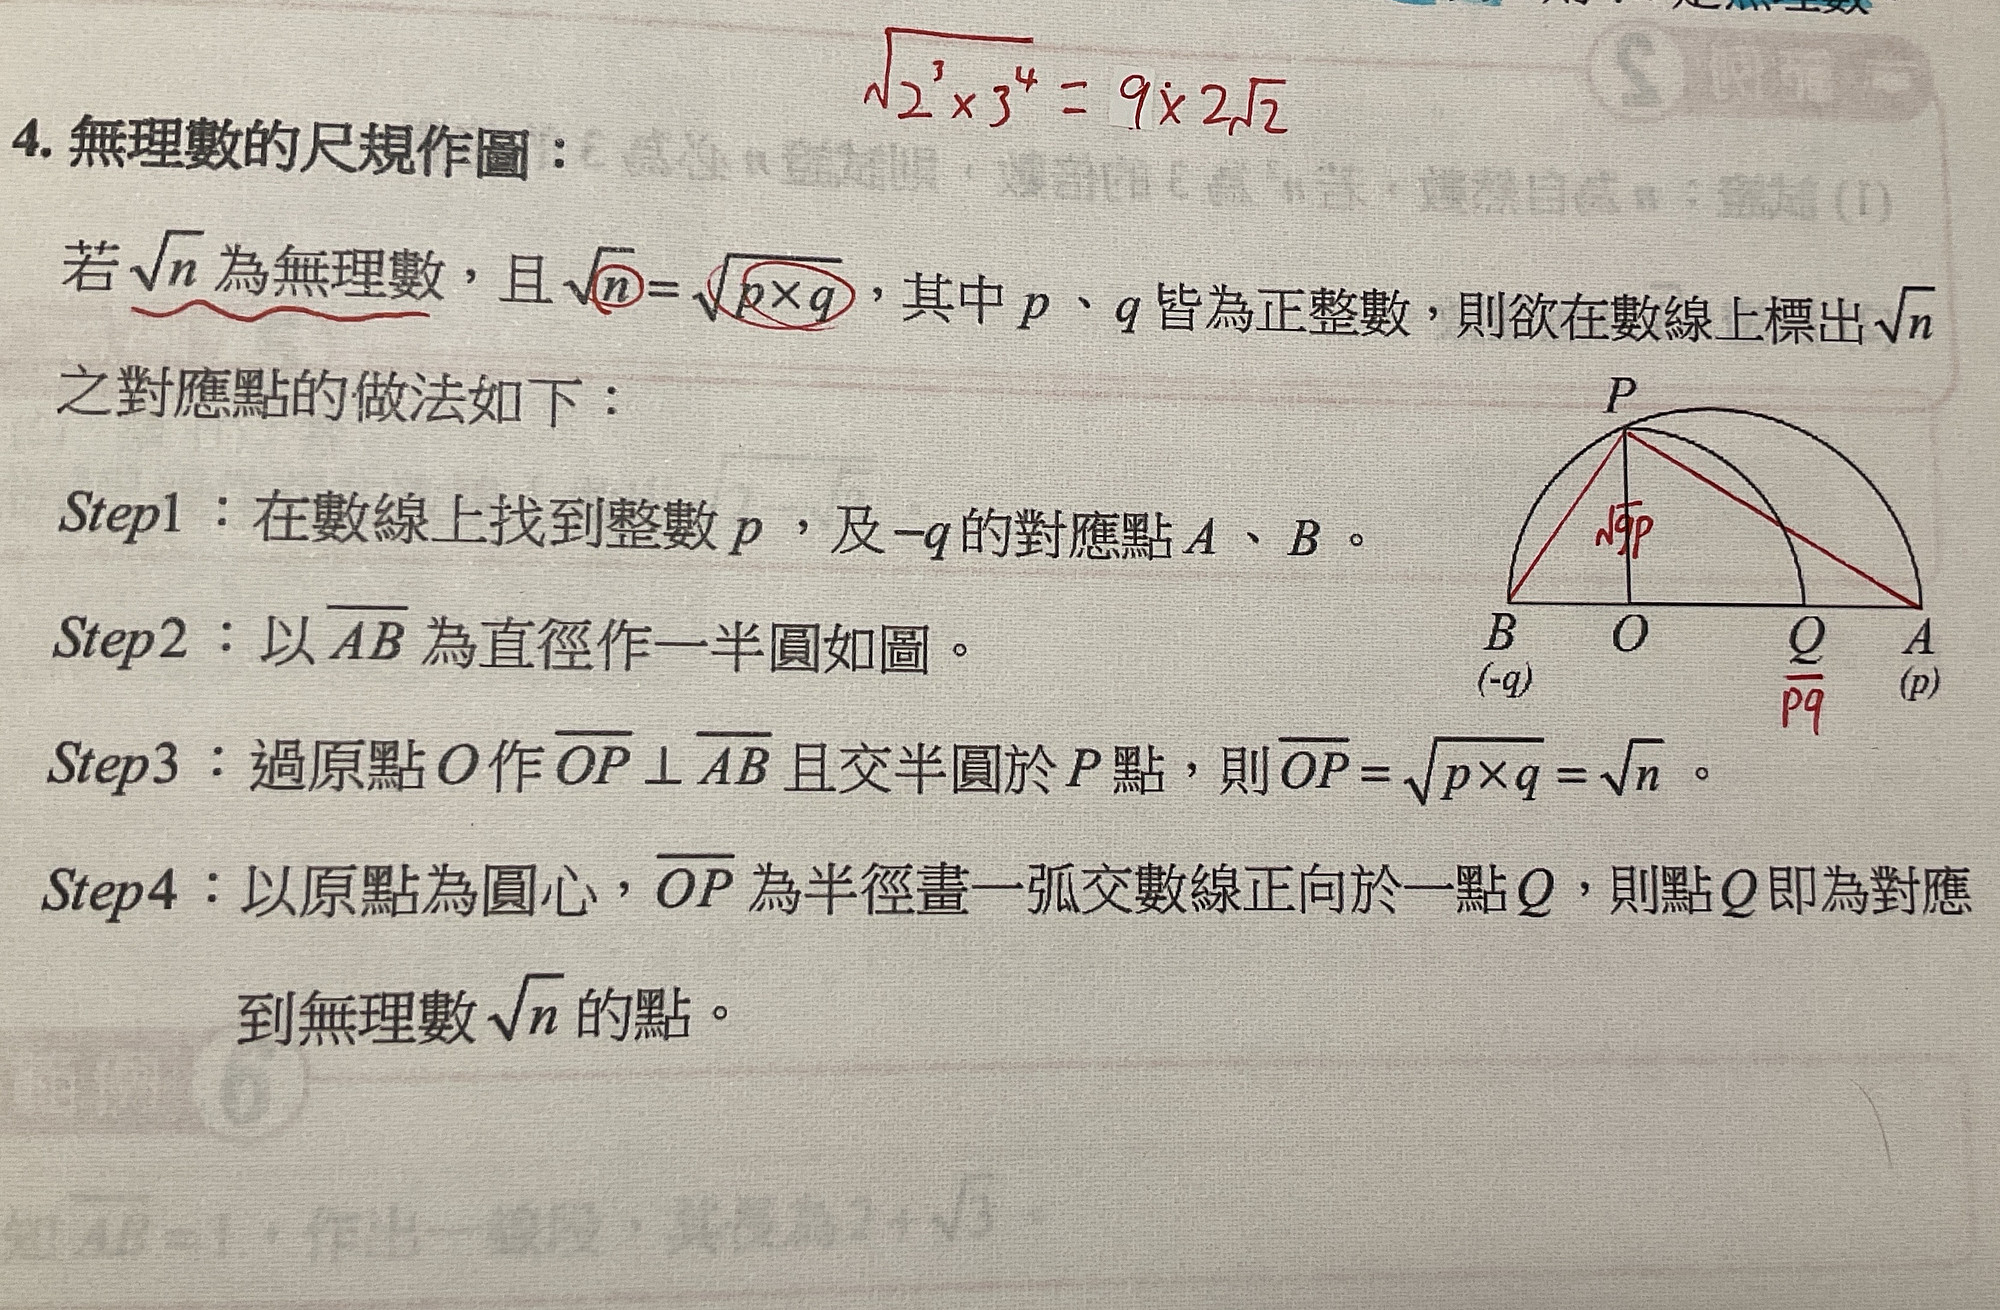 是無理數
√2³×3⁴ = 9×2√2
4. 無理數的尺規作圖：
若√n為無理數，且√n=√p×q，其中p、q皆為正整數，則欲在數線上標出√n
之對應點的做法如下：
P
Step1：在數線上找到整數p，及−q的對應點A、B。
√qp
Step2：以AB為直徑作一半圓如圖。
B O Q A
(-q) (p)
pq
Step3：過原點O作OP⊥AB且交半圓於P點，則OP=√p×q=√n。
Step4：以原點為圓心，OP為半徑畫一弧交數線正向於一點Q，則點Q即為對應
到無理數√n的點。